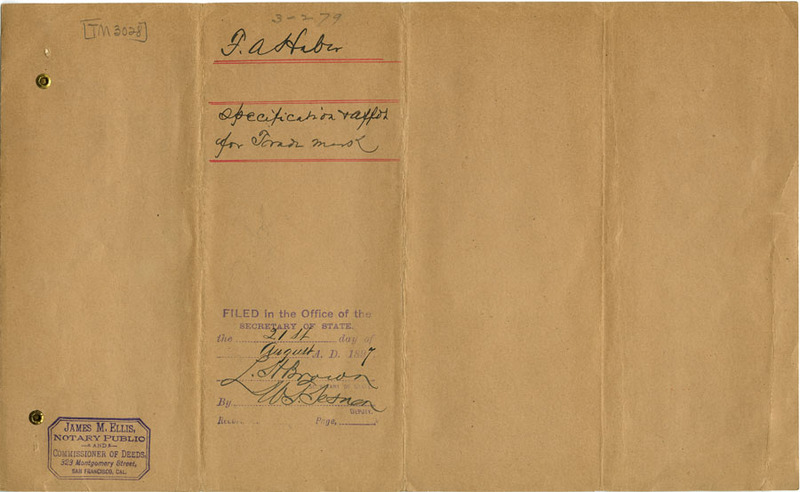 [TM 3028]
3-279
F. A Haber
Specification & affdt
for Trade mark
FILED in the Office of the
SECRETARY OF STATE.
the 21st day of
August A. D. 1897
L. H Brown
By
Deputy.
Page,
JAMES M. ELLIS,
NOTARY PUBLIC
AND
COMMISSIONER OF DEEDS,
323 Montgomery Street,
SAN FRANCISCO, CAL.